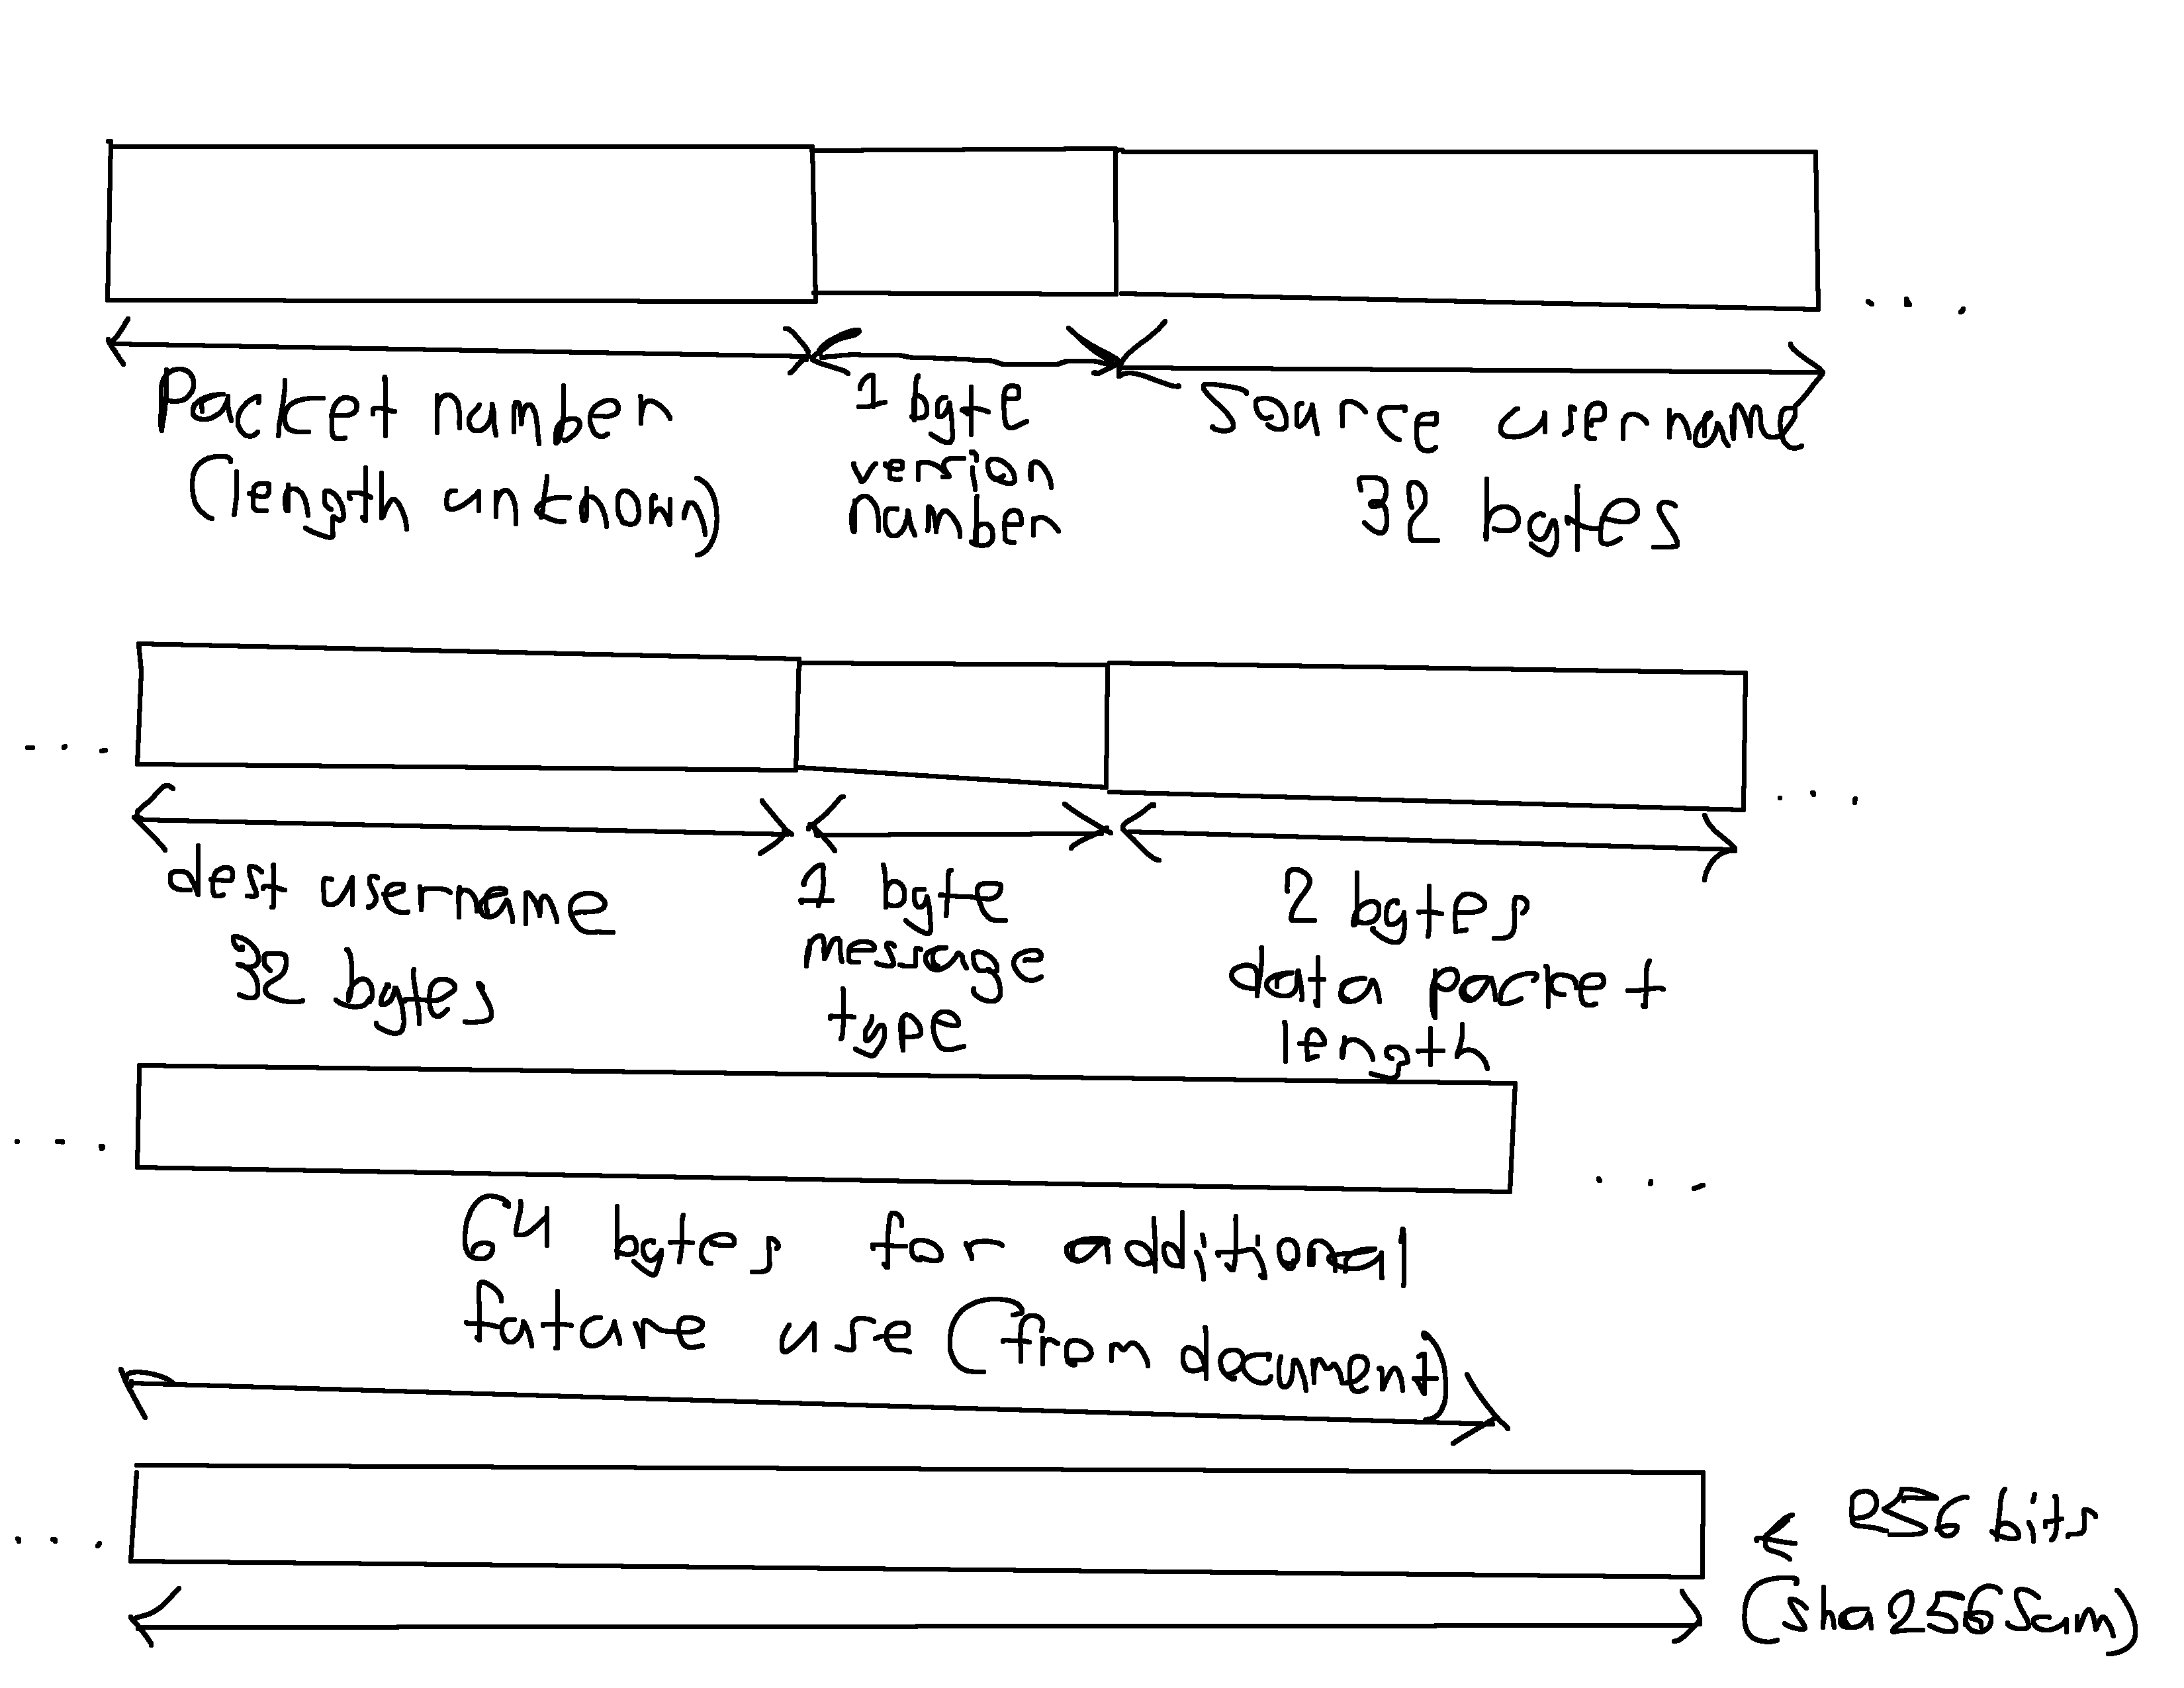 Packet number
(length unknown)
1 byte
version
number
Source username
32 bytes
dest username
32 bytes
1 byte
message
type
2 bytes
data packet
length
64 bytes for additional
future use (from document)
256 bits
(sha256sum)